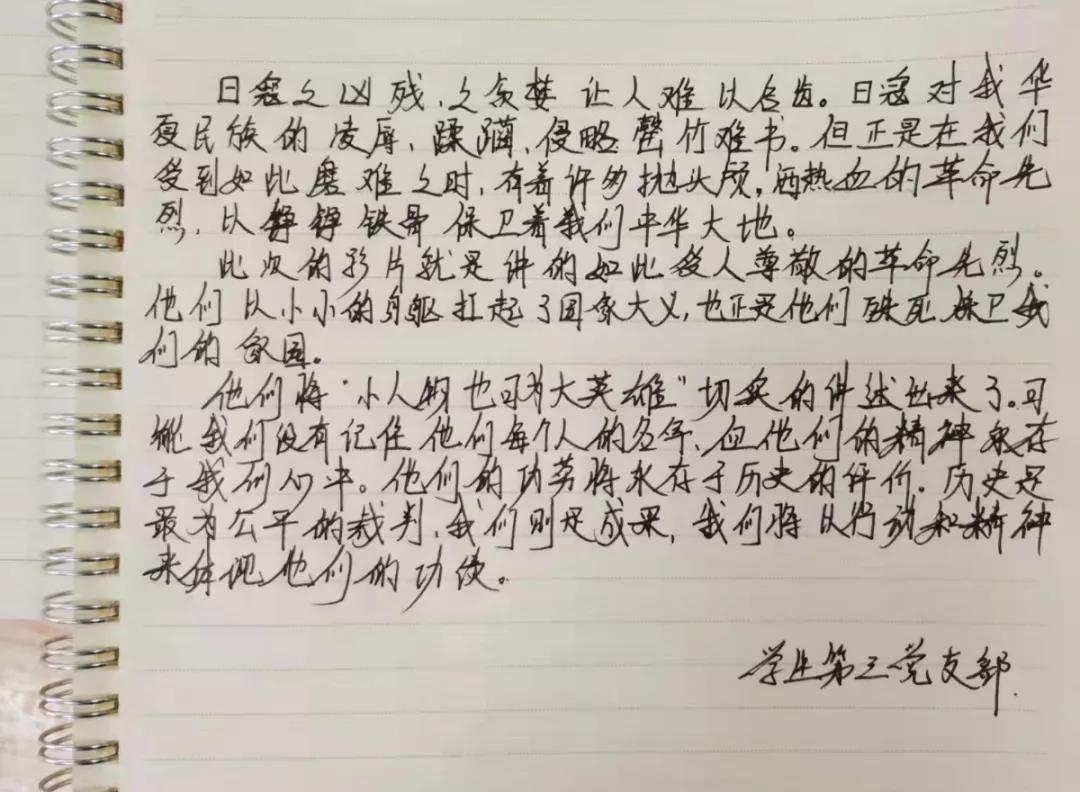 日寇之凶残,之贪婪 让人难以启齿。日寇对我华
夏民族的凌辱,蹂躏,侵略 罄竹难书。但正是在我们
受到如此磨难之时,有着许多抛头颅,洒热血的革命先
烈,以铮铮铁骨保卫着我们中华大地。
此次的影片就是讲的如此受人尊敬的革命先烈。
他们以小小的身躯扛起了国家大义,也正是他们殊死保卫我
们的家园。
他们将“小人物也可为大英雄”切实的讲述出来了。可
能我们没有记住他们每个人的名字,但他们的精神永存
于我们心中。他们的功劳将永存于历史的评价.历史是
最为公平的裁判,我们则是成果,我们将以行动和精神
来体现他们的功绩。
学生第三党支部.